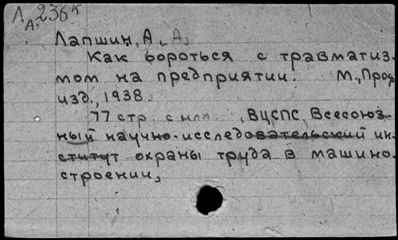 Л 236к
А.
Лапшин, А. А.
Как бороться с травматиз-
мом на предприятии. М., Проф
изд., 1938.
77 стр. с илл. ВЦСПС, Всесоюз-
ный научно-исследовательский ин-
ститут охраны труда в машино-
строении,